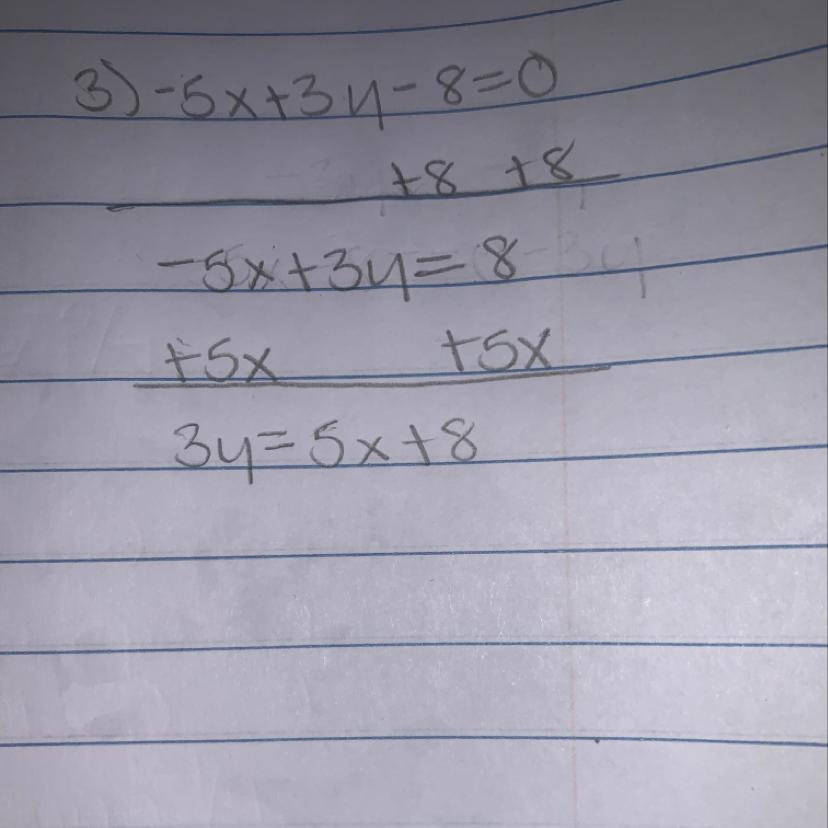 3) -5x+3y-8=0
+8 +8
-5x+3y=8
+5x +5x
3y=5x+8